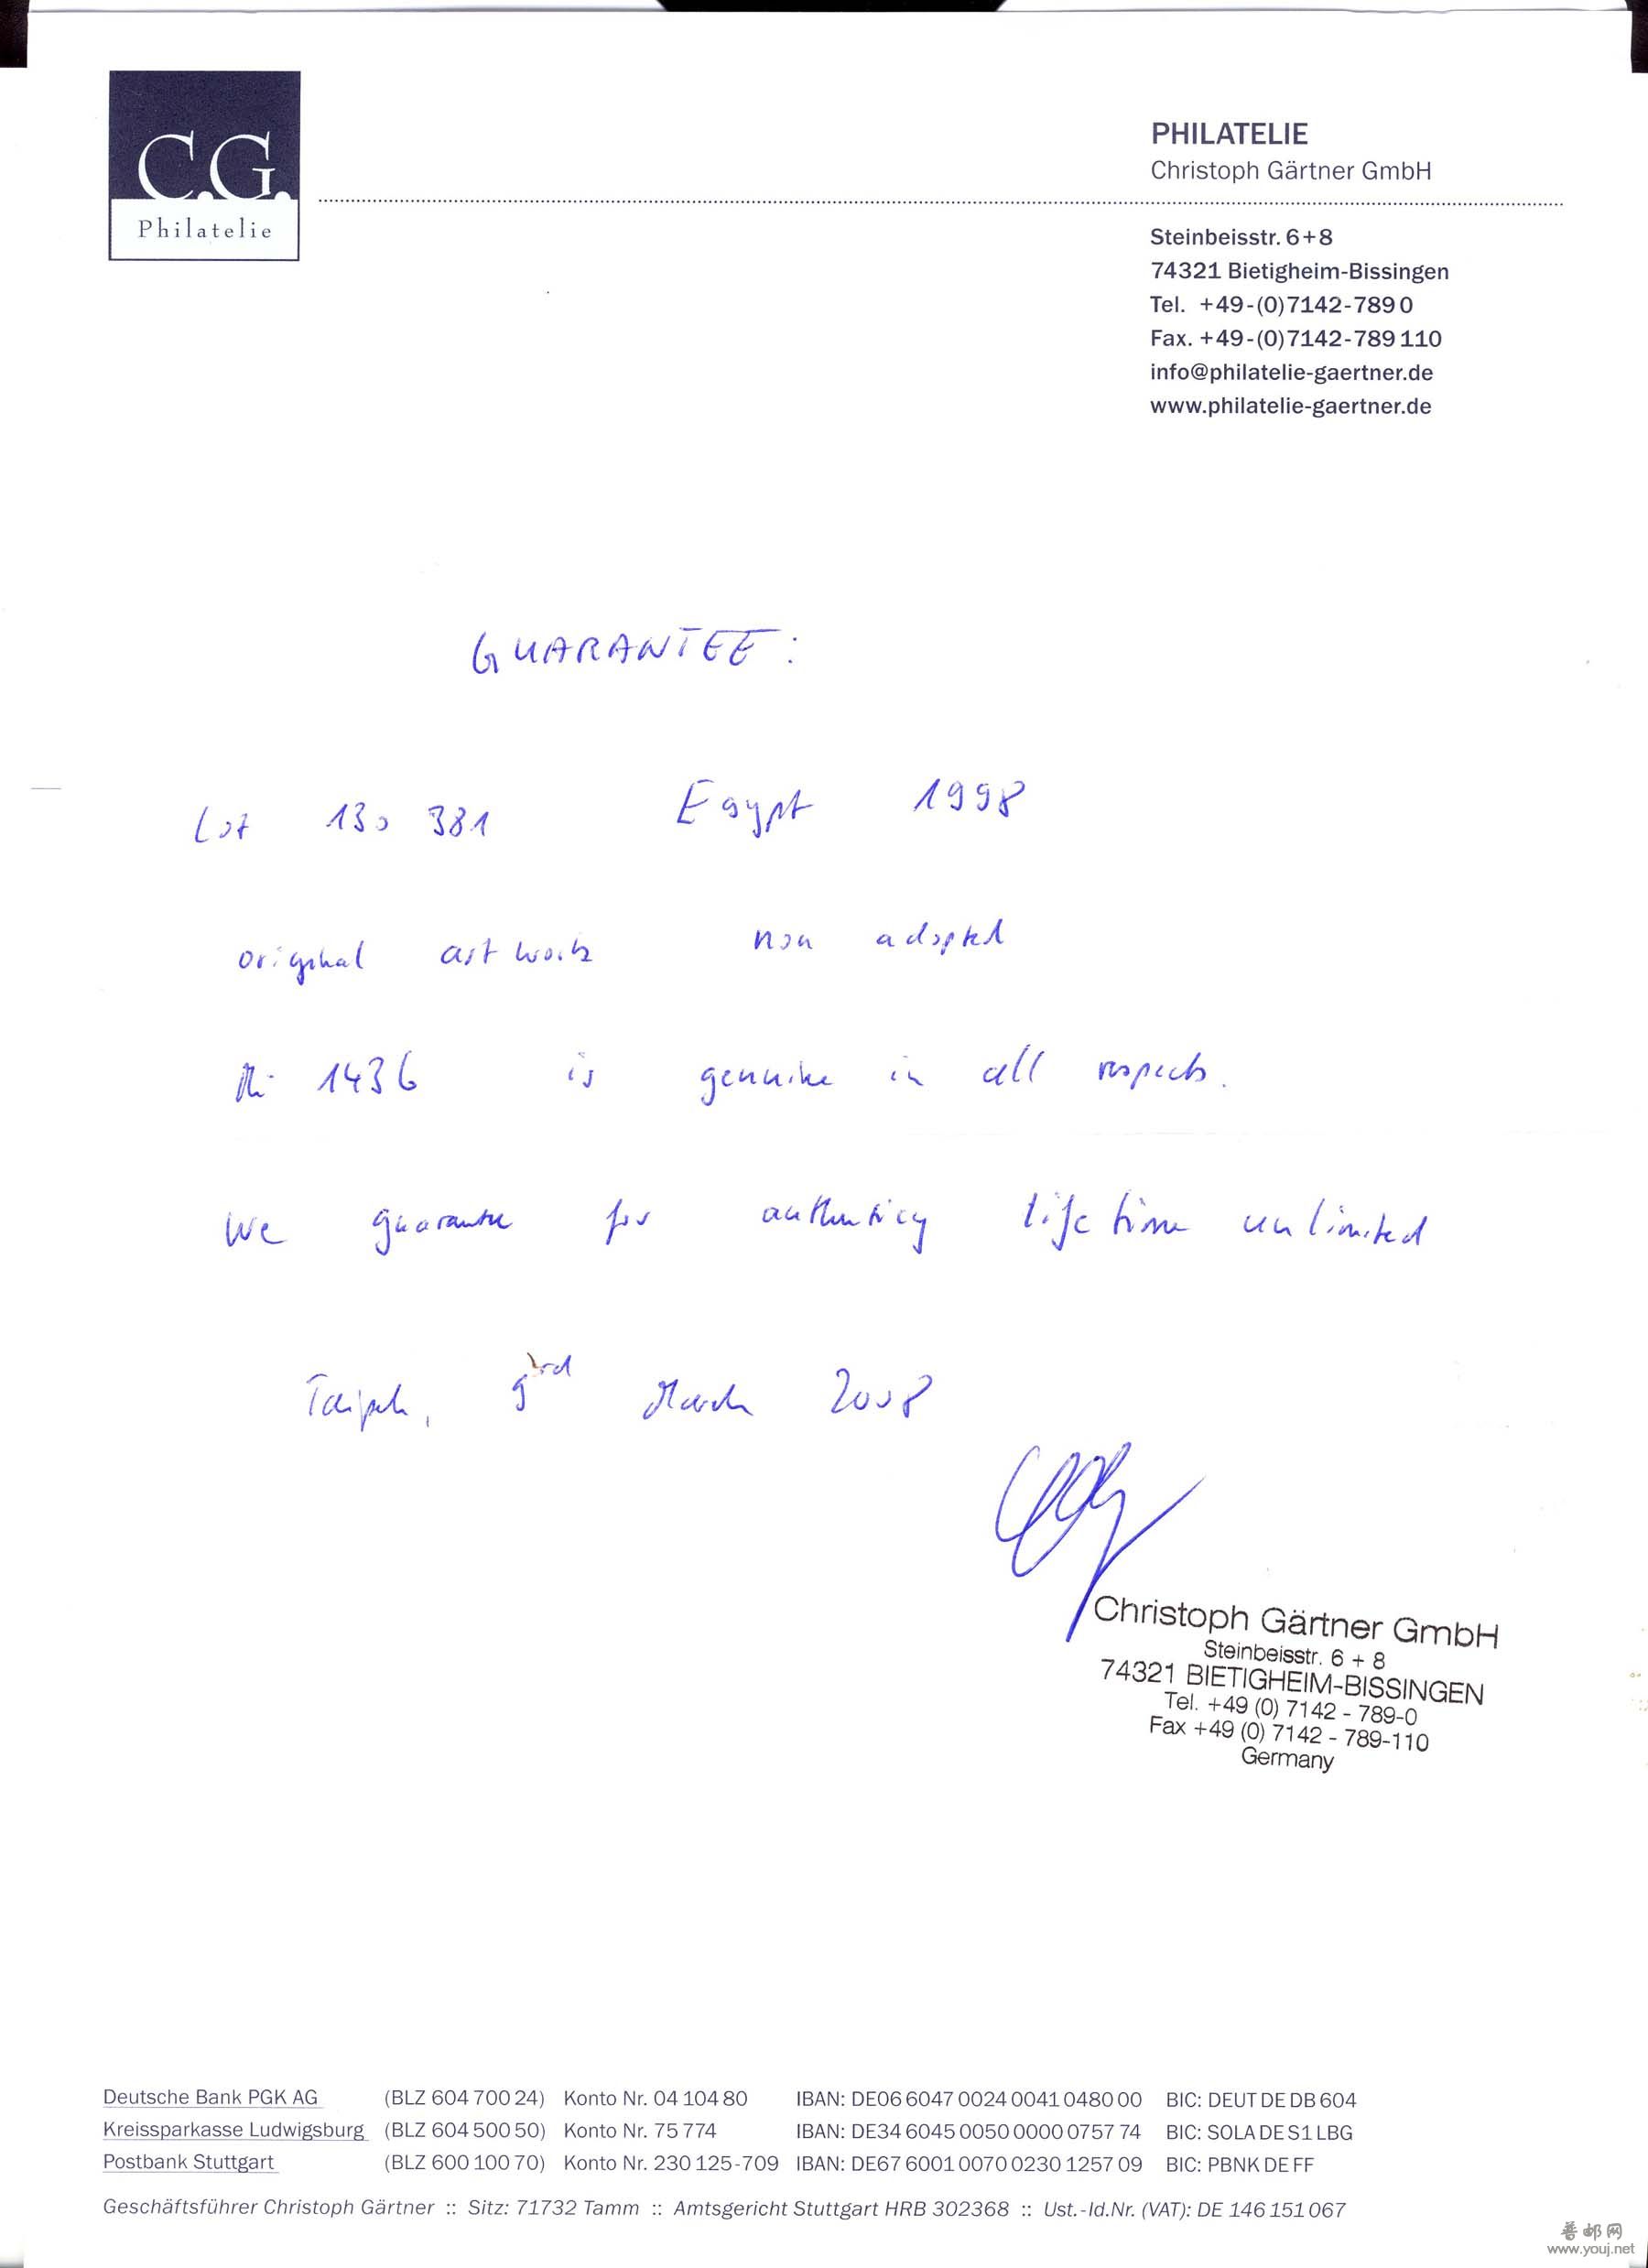 C.G.
Philatelie
PHILATELIE
Christoph Gärtner GmbH
Steinbeisstr. 6+8
74321 Bietigheim-Bissingen
Tel. +49-(0)7142-789 0
Fax. +49-(0)7142-789 110
info@philatelie-gaertner.de
www.philatelie-gaertner.de
GUARANTEE:
Lot 130 381 Egypt 1998
original art work non adopted
Mi 1436 is genuine in all respects.
We guarantee for authenticy life time unlimited
Taipeh, rd March 2008
Christoph Gärtner GmbH
Steinbeisstr. 6 + 8
74321 BIETIGHEIM-BISSINGEN
Tel. +49 (0) 7142 - 789-0
Fax +49 (0) 7142 - 789-110
Germany
Deutsche Bank PGK AG (BLZ 604 700 24) Konto Nr. 04 104 80 IBAN: DE06 6047 0024 0041 0480 00 BIC: DEUT DE DB 604
Kreissparkasse Ludwigsburg (BLZ 604 500 50) Konto Nr. 75 774 IBAN: DE34 6045 0050 0000 0757 74 BIC: SOLA DE S1 LBG
Postbank Stuttgart (BLZ 600 100 70) Konto Nr. 230 125-709 IBAN: DE67 6001 0070 0230 1257 09 BIC: PBNK DE FF
Geschäftsführer Christoph Gärtner :: Sitz: 71732 Tamm :: Amtsgericht Stuttgart HRB 302368 :: Ust.-Id.Nr. (VAT): DE 146 151 067
普邮网
www.youj.net